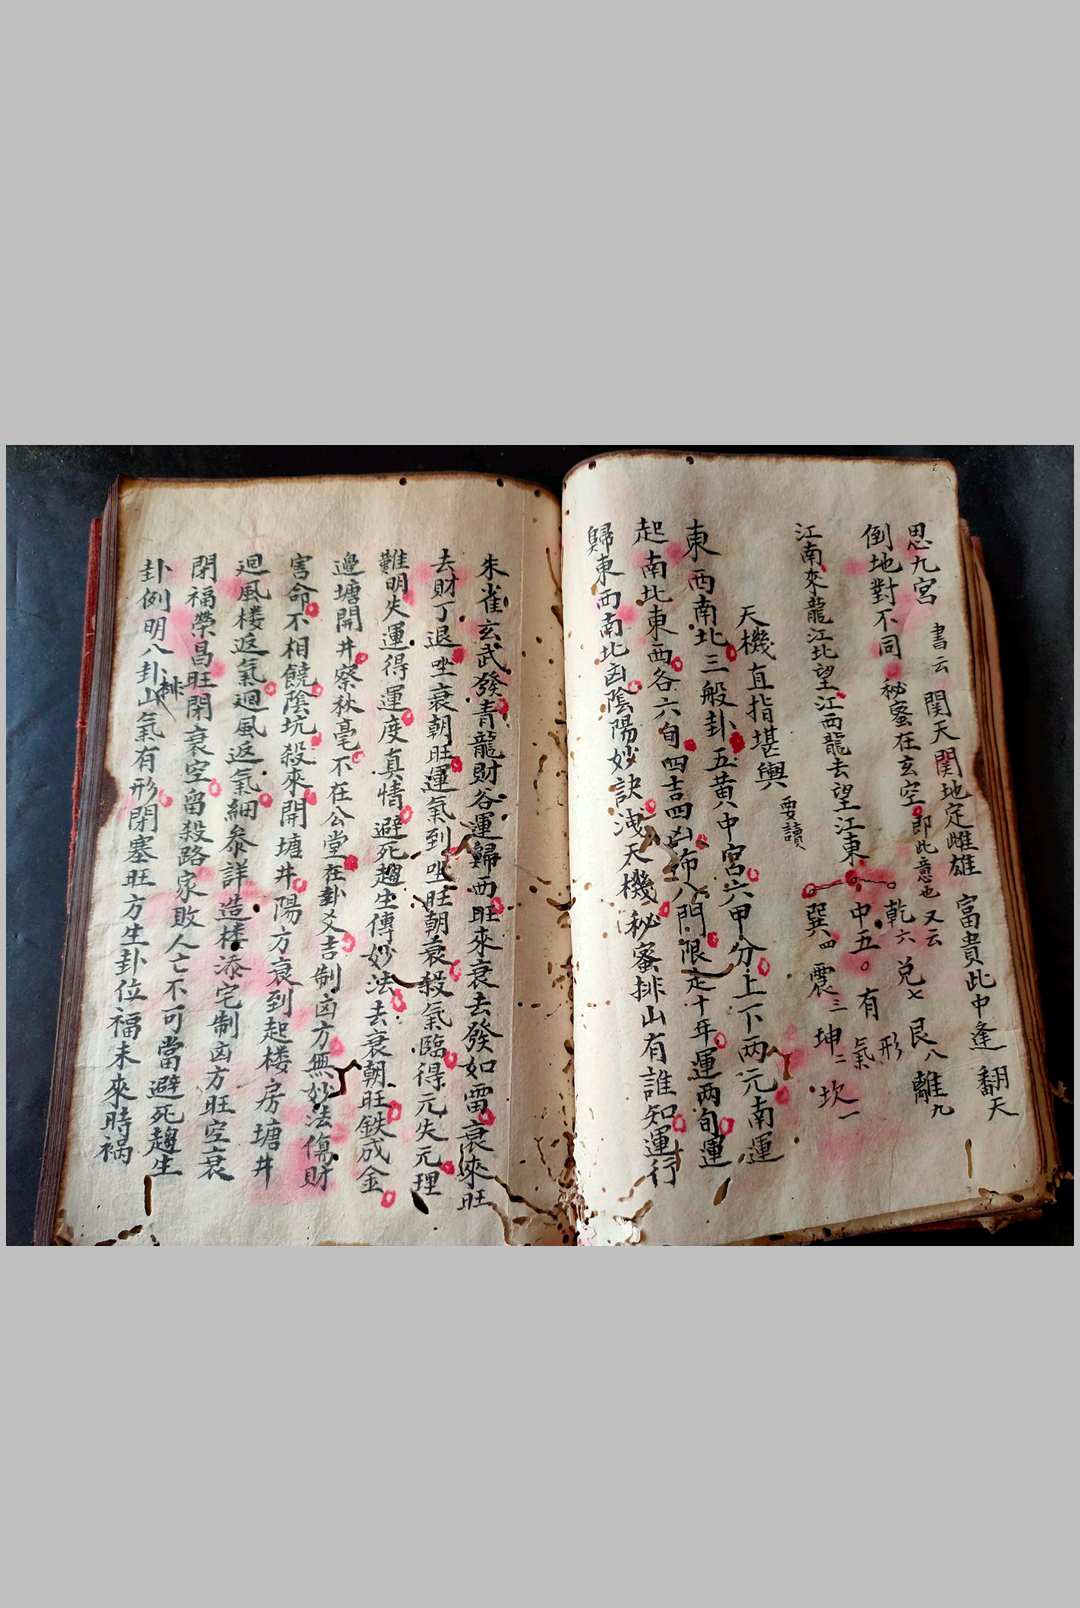 思九宮 書云 関天関地定雌雄 富貴此中逢 翻天
倒地對不同 秘蜜在玄空 即此意也 又云 乾六 兌七 艮八 離九
江南來龍江北望江西龍去望江東 中五 有 形 氣
巽四 震三 坤二 坎一
天機直指堪輿 要讀
東西南北三般卦五黄中宮六甲分上下两元南運
起南北東西各六旬四吉四凶佈八門限走十年運两旬運
歸東西南北凶陰陽妙訣洩天機秘蜜排山有誰知運行
朱雀玄武發青龍財谷運歸西旺來衰去發如雷衰來旺
去財丁退坐衰朝旺運氣到坐旺朝衰殺氣臨得元失元理
難明失運得運度真情避死趨生傳妙法去衰朝旺鉄成金
邊塘開井察秋毫不在公堂在卦爻吉制凶方無妙法傷財
害命不相饒陰坑殺來開塘井陽方衰到起楼房塘井
迴風楼返氣迴風返氣細参詳造楼添宅制凶方旺空衰
閉福榮昌旺閉衰空留殺路家敗人亡不可當避死趨生
卦例明八卦排山氣有形閉塞旺方生卦位福未來時禍